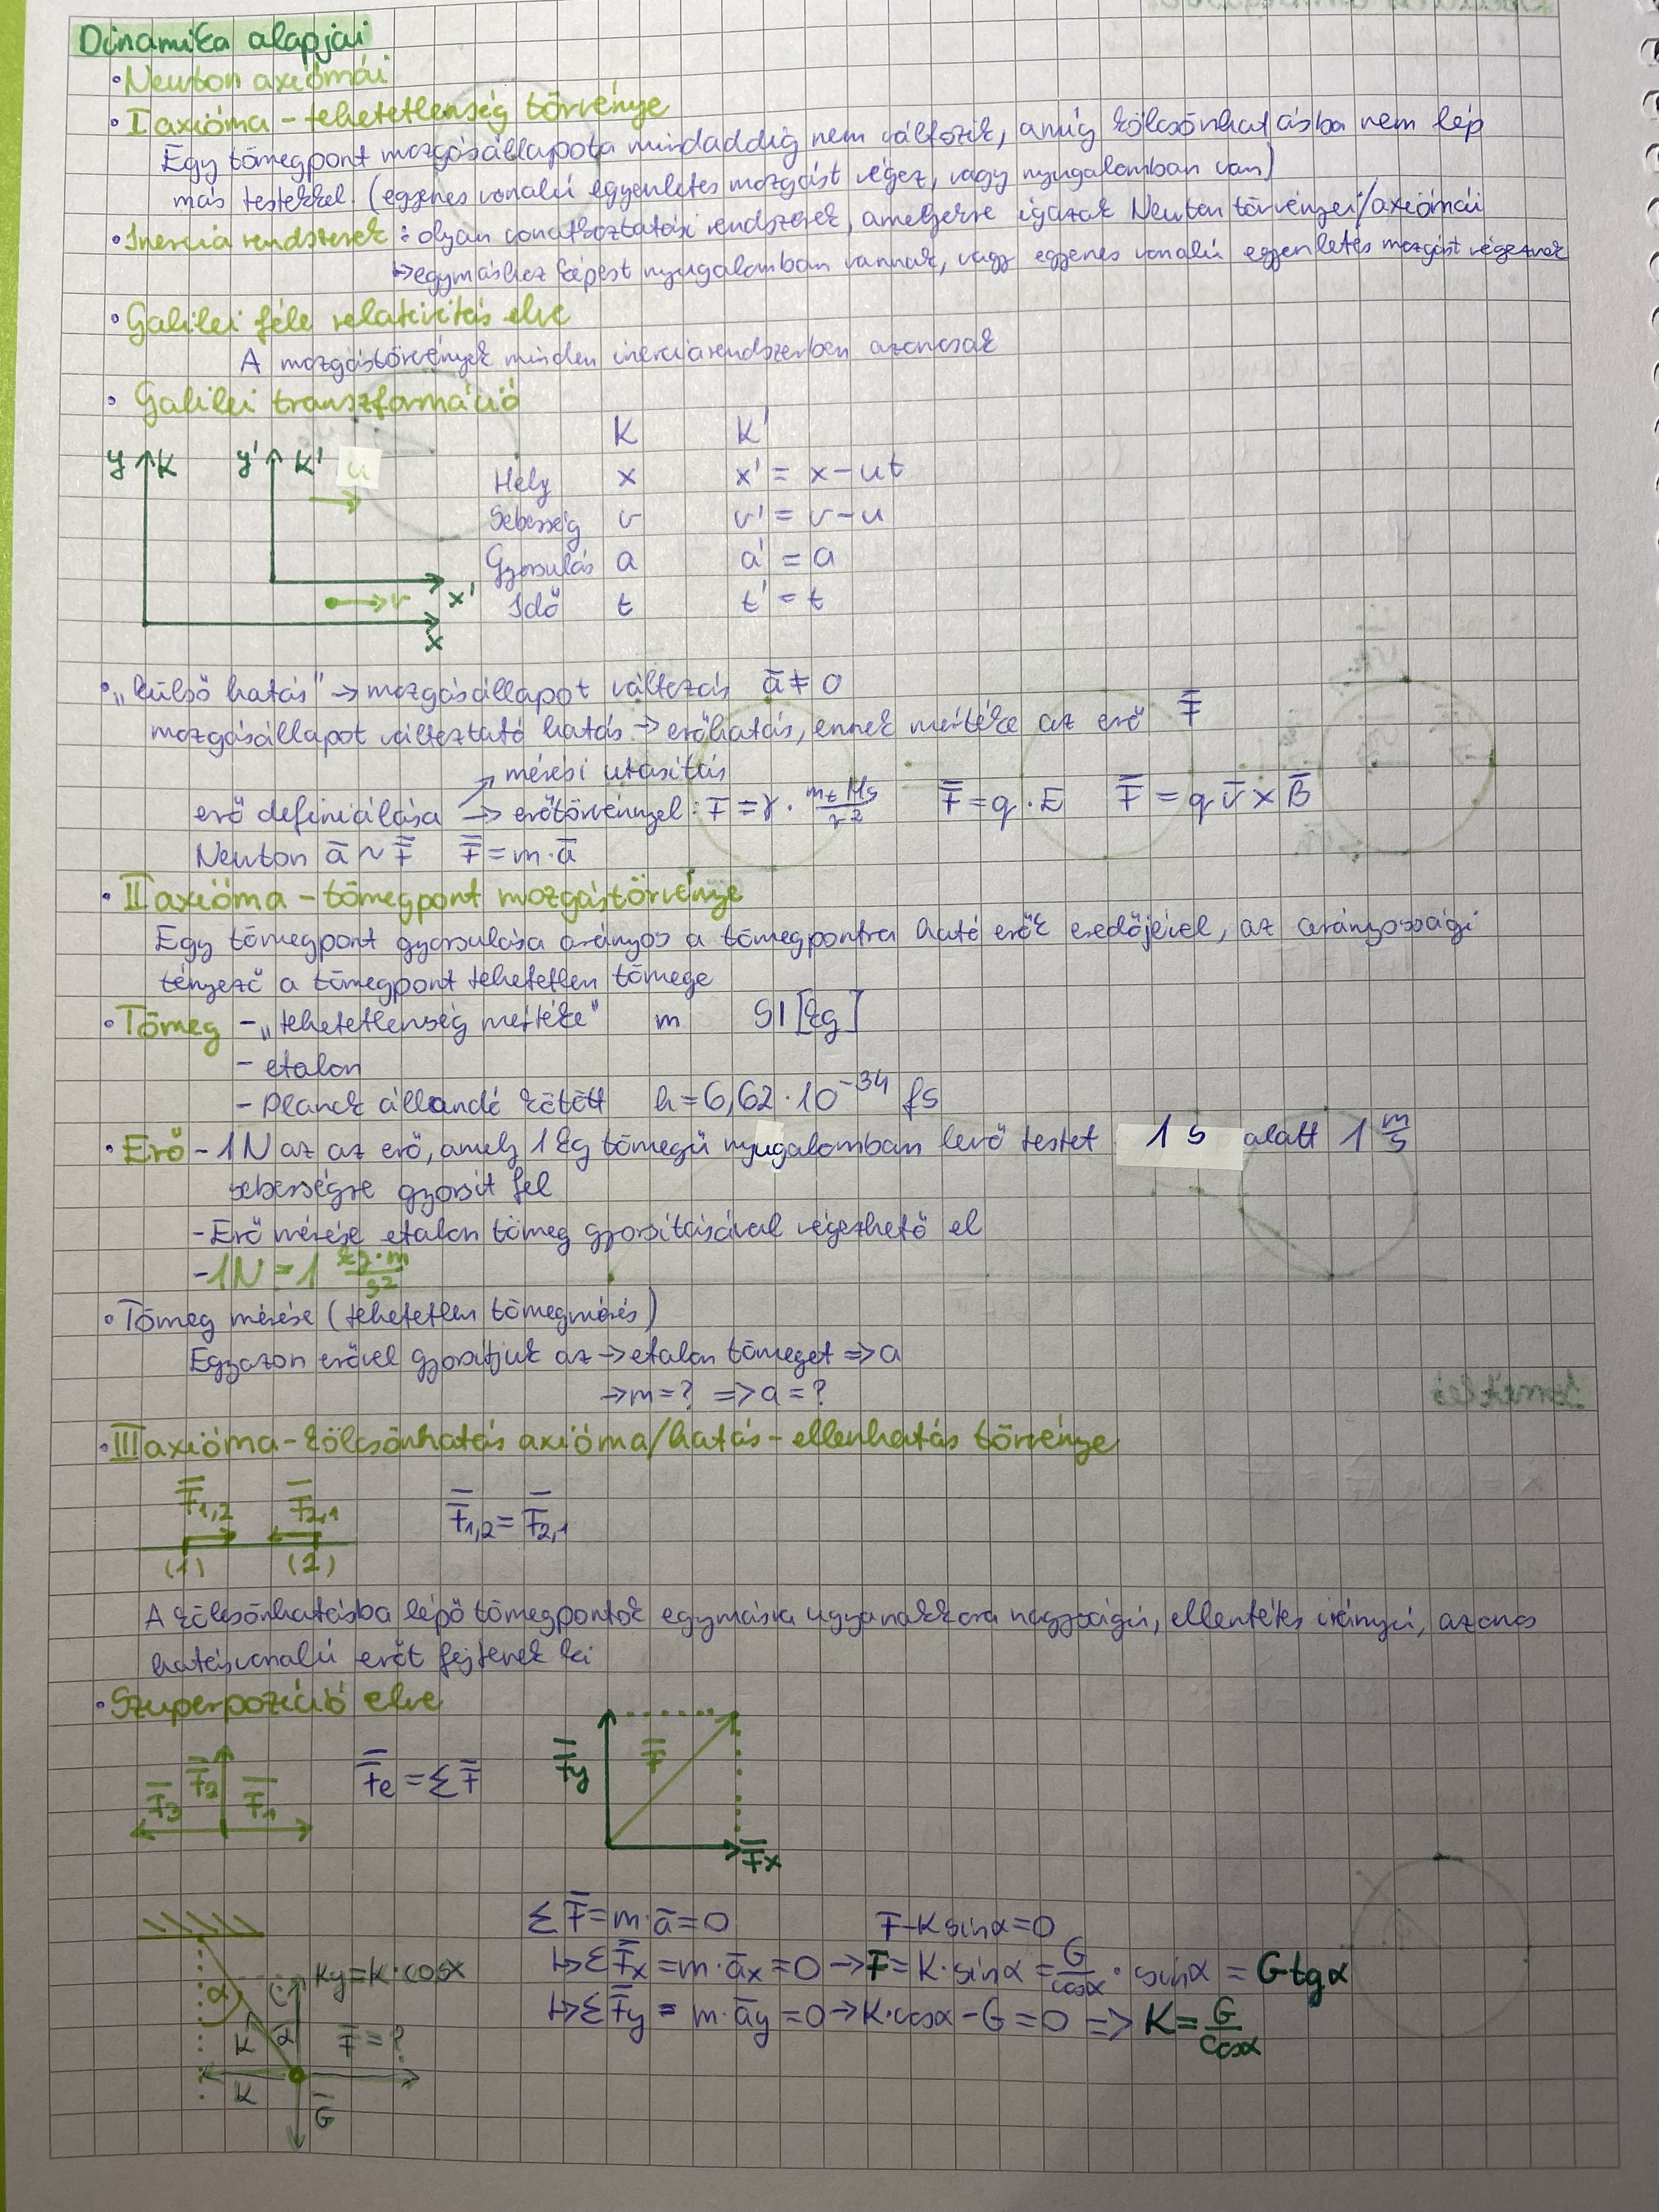 Dinamika alapjai
• Newton axiómái
• I axióma - tehetetlenség törvénye
Egy tömegpont mozgásállapota mindaddig nem változik, amíg kölcsönhatásba nem lép
más testekkel. (egyenes vonalú egyenletes mozgást végez, vagy nyugalomban van)
• Inercia rendszerek: olyan vonatkoztatási rendszerek, amelyekre igazak Newton törvényei/axiómái
↳ egymáshoz képest nyugalomban vannak, vagy egyenes vonalú egyenletes mozgást végeznek
• Galilei féle relativitás elve
A mozgástörvények minden inerciarendszerben azonosak
• Galilei transzformáció
K K'
y K y' K' u
Hely x x' = x - ut
Sebesség v v' = v - u
Gyorsulás a a' = a
v x' Idő t t' = t
x
• „külső hatás" → mozgásállapot változás a̅ ≠ 0
mozgásállapot változtató hatás → erőhatás, ennek mértéke az erő F̅
→ mérési utasítás
erő definiálása → erőtörvénnyel: F = γ · mₜ Ms / r² F̅ = q · E F̅ = q v̅ × B̅
Newton a̅ ~ F̅ F̅ = m · a̅
• II axióma - tömegpont mozgástörvénye
Egy tömegpont gyorsulása arányos a tömegpontra ható erők eredőjével, az arányossági
tényező a tömegpont tehetetlen tömege
• Tömeg - „tehetetlenség mértéke" m SI [kg]
- etalon
- Planck állandó kötött h = 6,62 · 10⁻³⁴ Js
• Erő - 1N az az erő, amely 1 kg tömegű nyugalomban levő testet 1 s alatt 1 m/s
sebességre gyorsít fel
- Erő mérése etalon tömeg gyorsításával végezhető el
- 1N = 1 kg·m/s²
• Tömeg mérése (tehetetlen tömegmérés)
Egyazon erővel gyorsítjuk az → etalon tömeget ⇒ a
→ m = ? ⇒ a = ?
• III axióma - kölcsönhatás axióma/hatás - ellenhatás törvénye
F̅₁,₂ F̅₂,₁ F̅₁,₂ = F̅₂,₁
(1) (2)
A kölcsönhatásba lépő tömegpontok egymásra ugyanakkora nagyságú, ellentétes irányú, azonos
hatásvonalú erőt fejtenek ki
• Szuperpozíció elve
F̅₃ F̅₂ F̅₁ F̅e = ΣF̅ F̅y F̅
F̅x
ΣF̅ = m · a̅ = 0 F - K sinα = 0
Ky = K · cosα ↳ ΣF̅x = m · a̅x = 0 → F = K · sinα = G/cosα · sinα = G tgα
α ↳ ΣF̅y = m · a̅y = 0 → K · cosα - G = 0 ⇒ K = G/cosα
K α F̅ = ?
K G̅